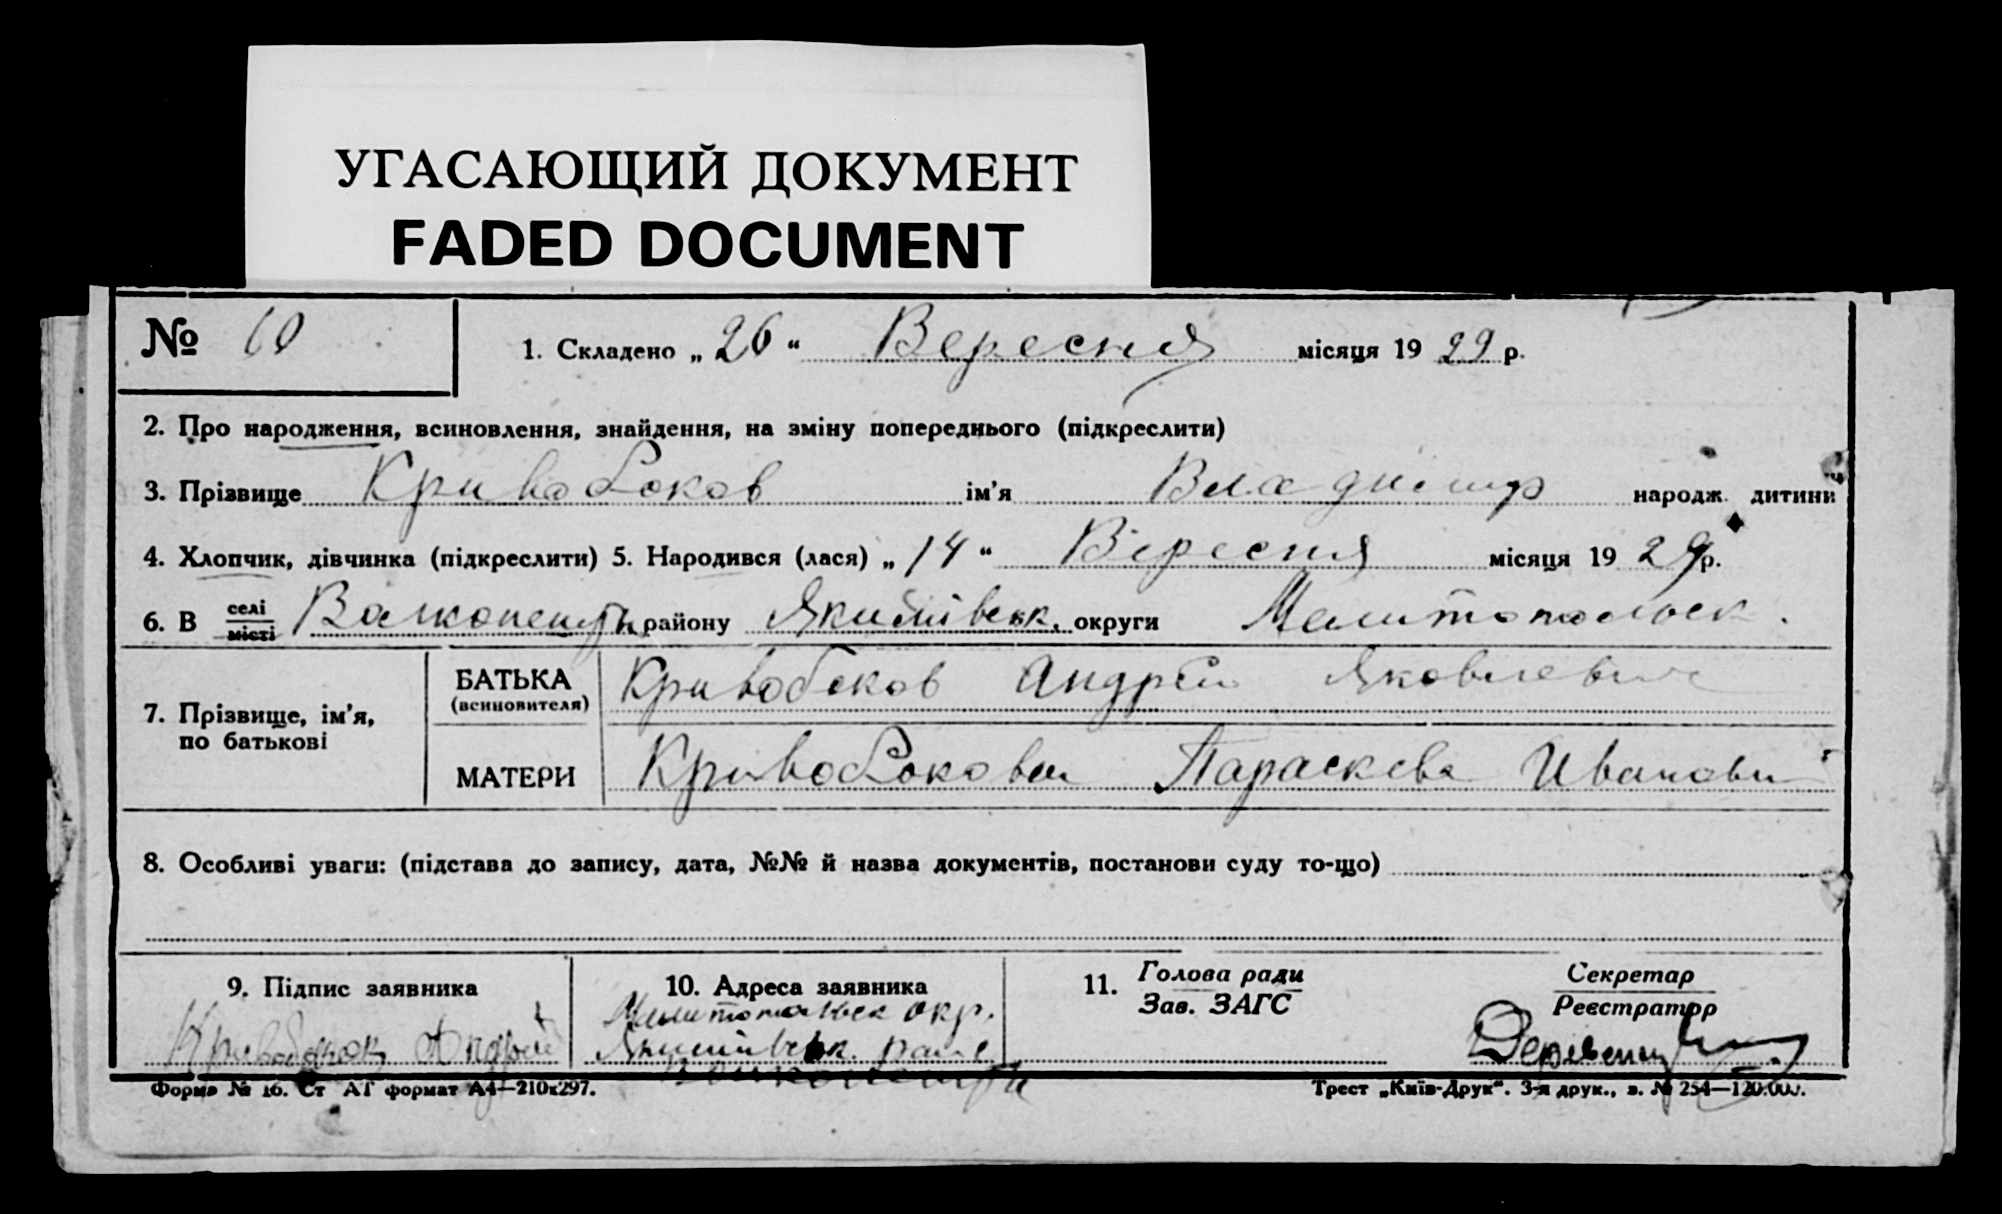 УГАСАЮЩИЙ ДОКУМЕНТ
FADED DOCUMENT
№ 60
1. Складено „ 26 “ Вересня місяця 19 29 р.
2. Про народження, всиновлення, знайдення, на зміну попереднього (підкреслити)
3. Прізвище Кривобоков ім'я Владимир народж. дитини
4. Хлопчик, дівчинка (підкреслити) 5. Народився (лася) „ 14 “ Вересня місяця 19 29 р.
6. В селі місті району Якимівськ. округи Мелитопольск.
7. Прізвище, ім'я, по батькові
БАТЬКА (всиновителя) Кривобоков Андрей Яковлевич
МАТЕРИ Кривобокова Параскева Иванови
8. Особливі уваги: (підстава до запису, дата, №№ й назва документів, постанови суду то-що)
9. Підпис заявника
Кривобоков Андрей
10. Адреса заявника
Мелитопольск окр.
Якимівськ.
11. Голова ради
Зав. ЗАГС
Секретар
Реєстратор
Форма № 16. Ст АТ формат А4—210х297.
Трест „Київ-Друк“. 3-я друк., з. № 254—120.000.